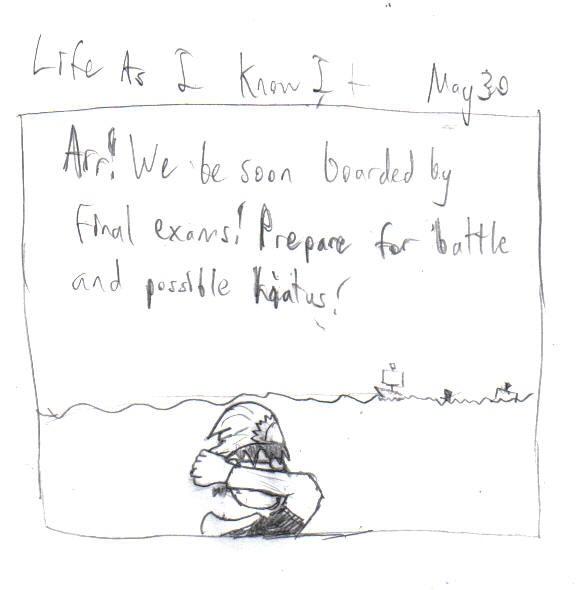 Life As I Know It May 30
Arr! We be soon boarded by
final exams! Prepare for battle
and possible hiatus!